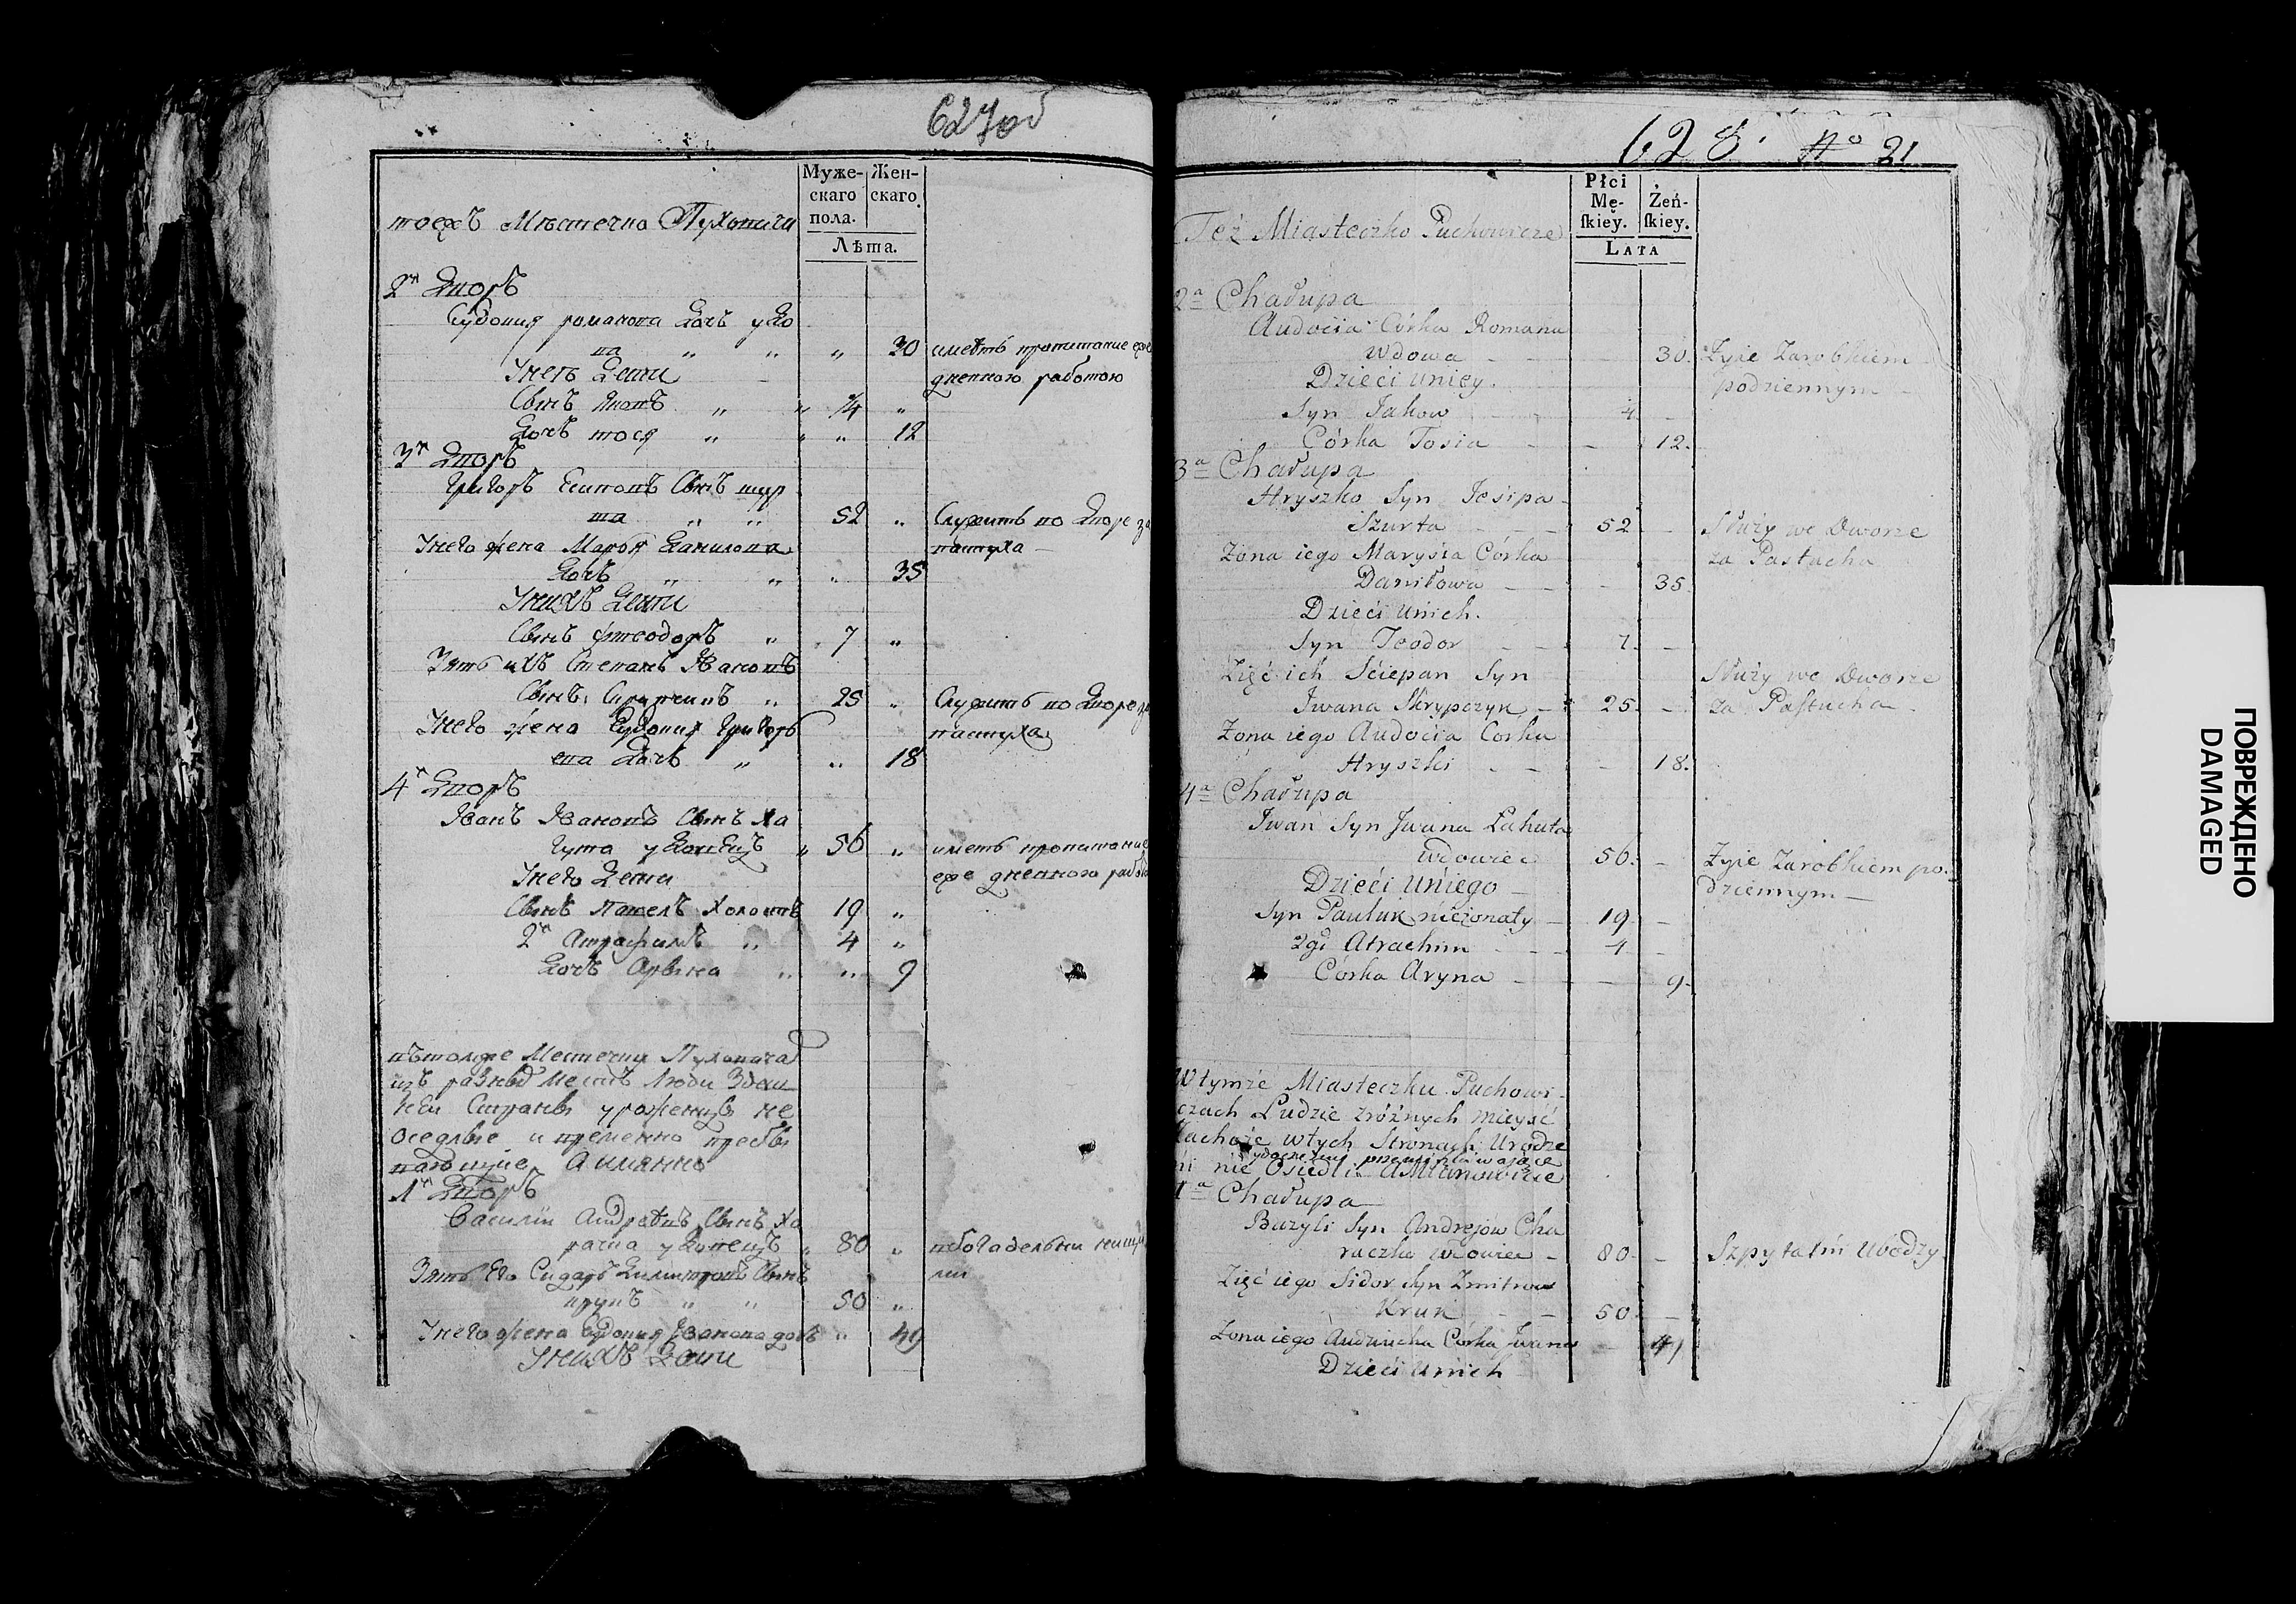 627об
Муже-
скаго
пола.
Жен-
скаго.
Лѣта.
тоежъ Мѣстечко Пуховичи
2й Дворъ
Евдокия романова Дочь удо
ва " " " 30 имеетъ пропитание еже
Унеѣ Дети дневною работою
Сынъ Яковъ " " 14 "
Дочь тося " " " 12
3й Дворъ
Григоръ Есиповъ Сынъ шур
та " " 52 " Служитъ во Дворе за
Унего жена Марья Данилова пастуха
Дочь " " " 35
Унихъ Дети
Сынъ фтеодоръ " 7 "
Зять ихъ Степанъ Ивановъ
Сынъ " 25 " Служитъ во Дворе за
Унего жена Евдокия Григорь пастуха
ева Дочь " " 18
4й Дворъ
Иванъ Ивановъ Сынъ Ла
гута удовецъ " 56 " иметь пропитание
Унего Дети еже дневною работо
Сынъ Павелъ Холостъ 19 "
2й Атрахимъ " 4 "
Дочь Арына " " 9
вътомже Местечку Пуховичах
изъ разныхъ Местъ Люди Здеш
ней Страны уроженцы не
оседлые и временно пребы
вающие Аимянно
1й Дворъ
Василий Андреевъ Сынъ Ха
рачка удовецъ " 80 " вбогадельни нищи
Зять Его Сидаръ Димитровъ Сынъ
крукъ " " 50 "
Унего жена Евдокия Иванова дочь " 49
Унихъ Дети
628. No 21
Płci
Mę-
skiey.
Żeń-
skiey.
LATA
Też Miasteczko Puchowicze
2a Chałupa
Audocia Córka Romana
Wdowa — — 30. Żyie Zarobkiem
Dzieci uniey. podziennym —
Syn Jakow 4 —
Córka Tosia — — 12.
3a Chałupa
Hryszko Syn Jesipa
Szurta — 52 — Służy we Dworze
Żona iego Marysia Córka za Pastucha
Daniłowa — — 35.
Dzieci unich.
Syn Teodor — 7. —
Zięć ich Sciepan Syn Służy we Dworze
Jwana Skrypczyk — 25. — za Pastucha.
Żona iego Audocia Corka
Hryszki — — 18.
4a Chałupa
Jwan Syn Jwana Łahuta
Wdowiec 56. — Żyie Zarobkiem po-
Dzieci uniego — dziennym —
Syn Pauluk nieżonaty — 19. —
2gi Atrachim — 4 —
Córka Aryna — — 9.
Wtymże Miasteczku Puchowi-
czach Ludzie zróżnych mieysć
wtych Stronach Urodze
ni nie Osiedli AMianowicie
1a Chałupa
Bazyli Syn Andrejow Cha
raczka wdowiec — 80. — Szpytalni Ubodzy
Zięć iego Sidor Syn Zmitrow
Kruk — — 50. —
Żona iego Córka Jwana — 41
Dzieci unich
ПОВРЕЖДЕНО
DAMAGED